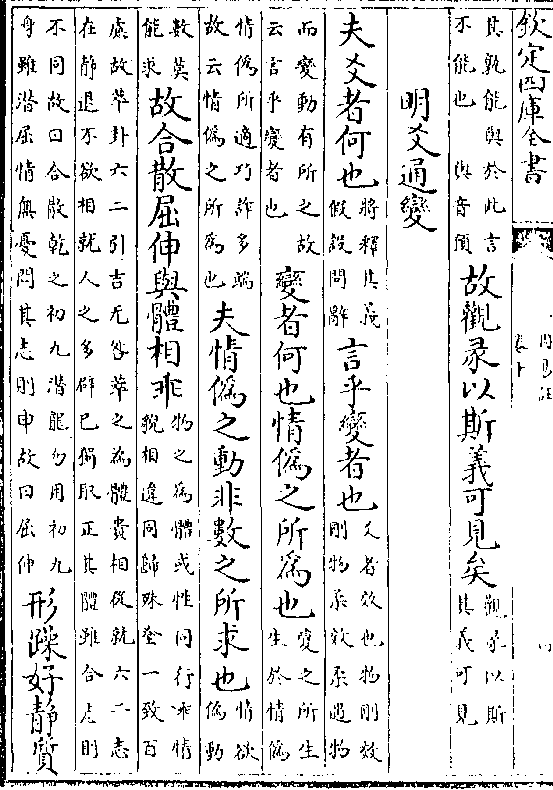 欽定四庫全書
卷十
其孰能與於此言不能也 與音預 故觀彖以斯義可見矣 觀彖以斯其義可見
明爻通變
夫爻者何也 將釋其義假設問辭 言乎變者也 爻者效也物剛效剛物柔效柔遇物
而變動有所之故云言乎變者也 變者何也情僞之所爲也 變之所生生於情僞
情僞所適巧詐多端故云情僞之所爲也 夫情僞之動非數之所求也 情欲僞動
數莫能求 故合散屈伸與體相乖 物之爲體或性同行乖情貌相違同歸殊塗一致百
慮故萃卦六二引吉无咎萃之爲體貴相從就六二志在靜退不欲相就人之多辟已獨取正其體雖合志則
不同故曰合散乾之初九潛龍勿用初九身雖潛屈情無憂悶其志則申故曰屈伸 形躁好静質